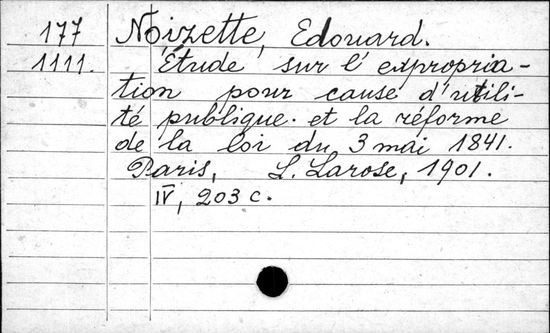 177 Noizette, Edouard.
1111. Étude sur l'expropria-
tion pour cause d'utili-
té publique. et la réforme
de la loi du 3 mai 1841.
Paris, L. Larose, 1901.
IV, 203 c.